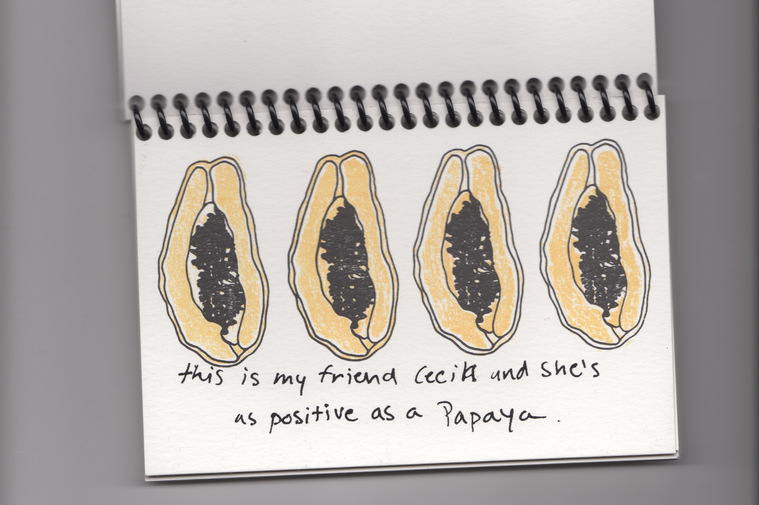 this is my friend and she's
as positive as a Papaya.